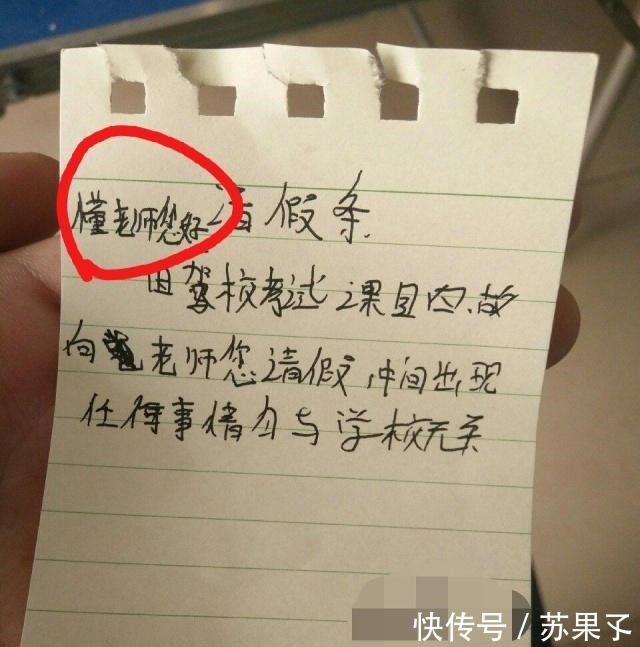 懂老师您好 请假条
因驾校考试课目内.故
向老师您请假,中间出现
任得事情与学校无关
快传号 / 苏果子